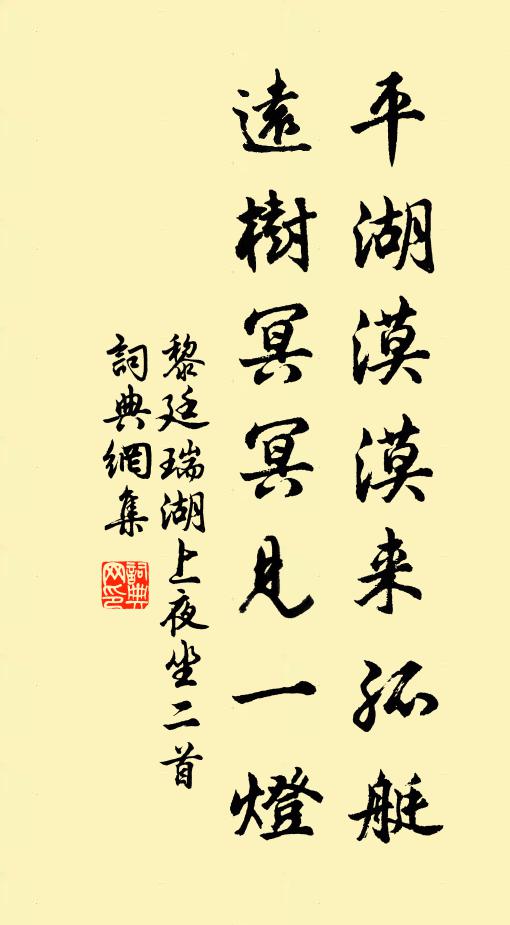 平湖漠漠来孤艇
遠樹冥冥見一燈
黎廷瑞湖上夜坐二首
詞典網集
詞典网印